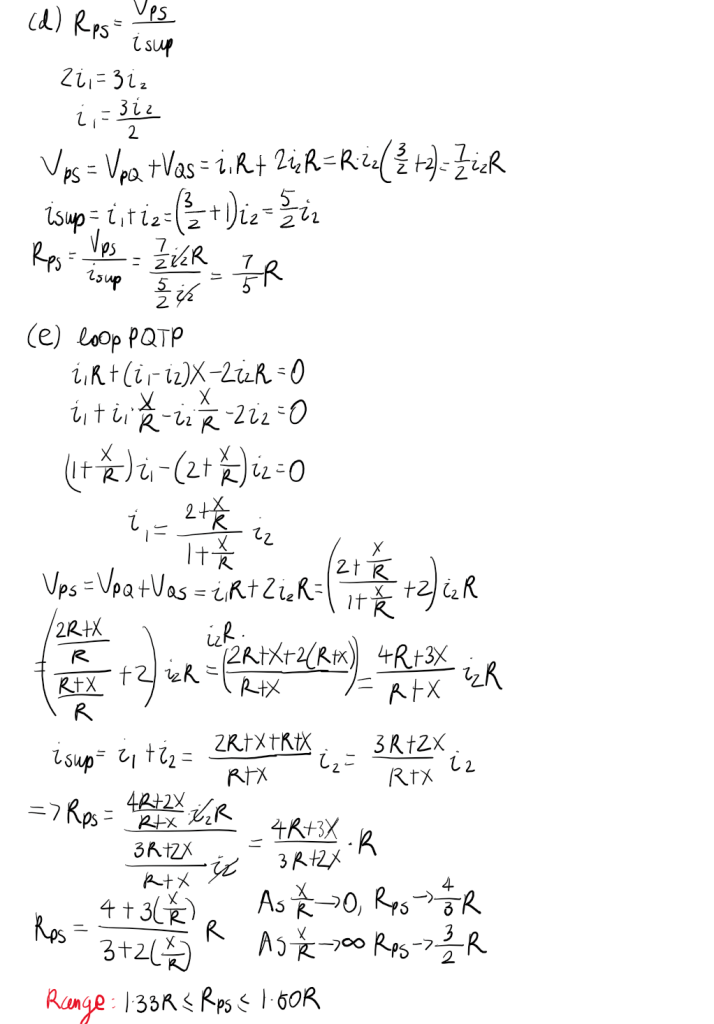 (d) R_PS = V_PS / i_sup
2i₁ = 3i₂
i₁ = 3i₂ / 2
V_PS = V_PQ + V_QS = i₁R + 2i₂R = R·i₂(3/2 + 2) = 7/2 i₂R
i_sup = i₁ + i₂ = (3/2 + 1)i₂ = 5/2 i₂
R_PS = V_PS / i_sup = (7/2 i₂R) / (5/2 i₂) = 7/5 R
(e) loop PQTP
i₁R + (i₁ - i₂)X - 2i₂R = 0
i₁ + i₁·X/R - i₂ X/R - 2i₂ = 0
(1 + X/R)i₁ - (2 + X/R)i₂ = 0
i₁ = (2 + X/R) / (1 + X/R) i₂
V_PS = V_PQ + V_QS = i₁R + 2i₂R = ((2 + X/R) / (1 + X/R) + 2) i₂R
= (((2R+X)/R) / ((R+X)/R) + 2) i₂R = i₂R·((2R+X+2(R+X)) / (R+X)) = (4R+3X) / (R+X) i₂R
i_sup = i₁ + i₂ = (2R+X+R+X) / (R+X) i₂ = (3R+2X) / (R+X) i₂
=> R_PS = ((4R+2X)/(R+X) i₂R) / ((3R+2X)/(R+X) i₂) = (4R+3X) / (3R+2X) · R
R_PS = (4 + 3(X/R)) / (3 + 2(X/R)) R
As X/R → 0, R_PS → 4/3 R
As X/R → ∞ R_PS → 3/2 R
Range: 1.33R ≤ R_PS ≤ 1.50R